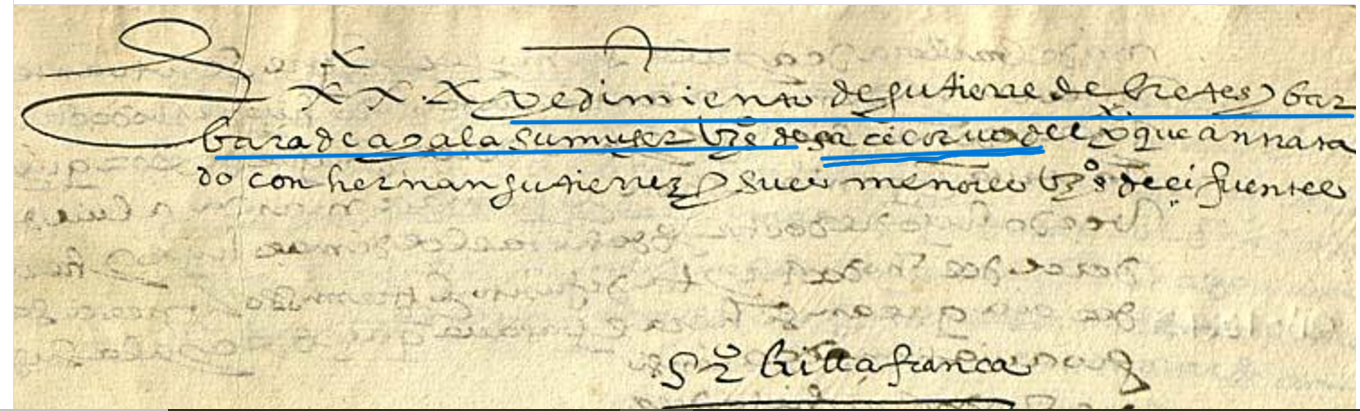 XXX pedimiento de gutierre de bretes y bar
bara de ayala su muger vzs de sacecoruo del que an trata
do con hernan gutierrez y sus menores vzos de cifuentes
sº villafranca